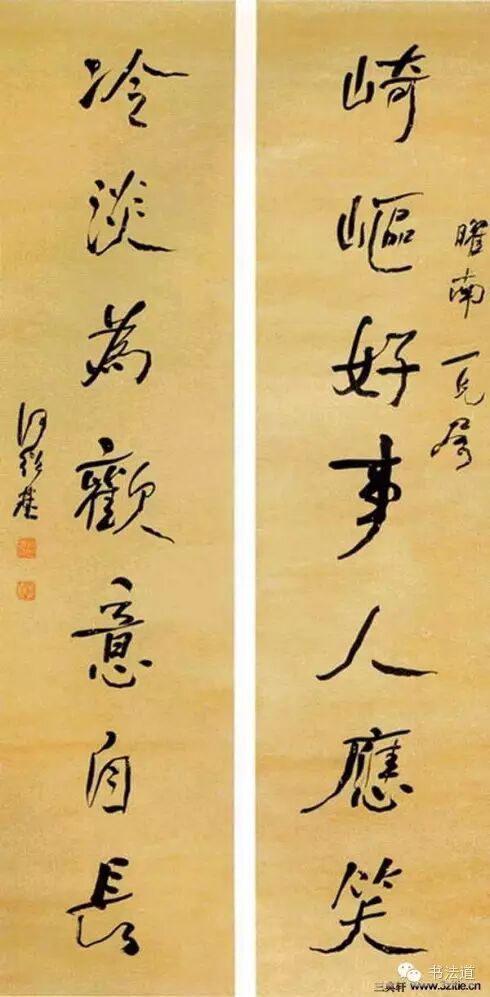 崎嶇好事人應笑
曜南一兄屬
冷淡為歡意自長
何紹基
三奠轩 www.3zitie.cn
书法道